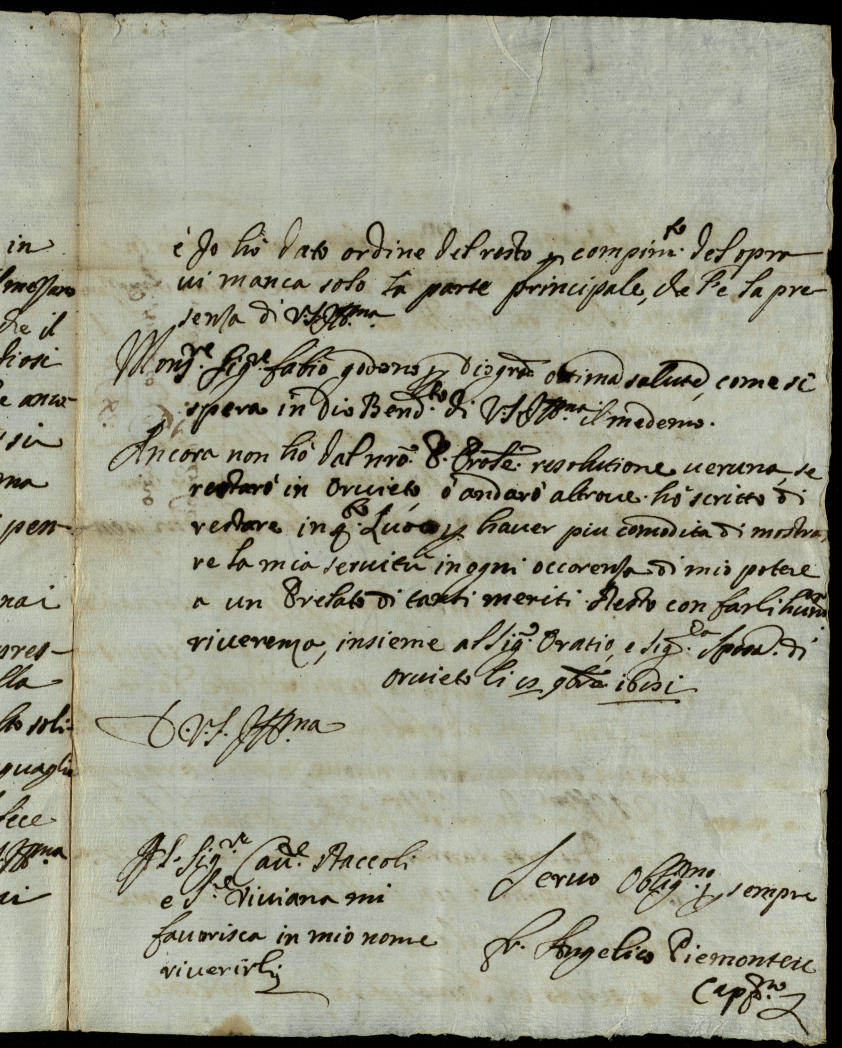 in
che il
ma
pen-
mai
pres-
lla
è Io hò dato ordine del resto p compim.to del opra
vi manca solo la parte principale, che l'è la pre
senza di V.S. Ill.ma
Mon.re Sig.re fabio godono p dio gra ottima salute, come si
spera in Dio Bened.to di V.S. Ill.ma il medemo.
Ancora non hò dal nro. P. Prole. resolutione veruna, se
restarò in Orvieto, ò andarò altrove. hò scritto di
restare in q.to Luoco p haver piu comodita di mostra,
re la mia servitù in ogni occorenza di mio potere
a un Prelato di tanti meriti. Resto con farli hum.
riverenza, insieme al Sig. Oratio, e Sig.ra Sposa. di
Orvieto li 9bre
D. V.S. Ill.ma
Il Sig.re Cav.e Staccoli
e S.ra Viviana mi
favorisca in mio nome
riverirli
Servo Oblig.mo p sempre
fr. Angelico Piemontese
Capp.no